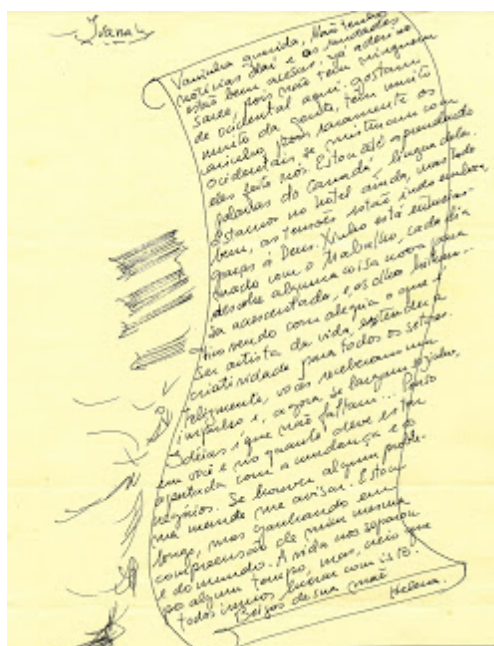 Ivana
Vaninha querida, Não tenho
notícias daí e as saudades
estão bem acesas. Já aderi ao
saree, pois não tem ninguém
de ocidental aqui. Gostam
muito da gente, tem muito
carinho, pois raramente os
ocidentais se misturam com
eles feito nós. Estou até aprendendo
palavras do Canadá, língua dela.
Estamos no hotel ainda, mas tudo
bem, as tensões estão indo embora,
graças a Deus. Xinho está entusias-
mado com o trabalho, cada dia
descobre alguma coisa nova para
ser acrescentada, e os olhos brilham...
Ando vendo com alegria o que é
ser artista da vida, estender a
criatividade para todos os setores.
Felizmente, vocês receberam um
impulso e, agora, se lançam
Idéias é que não faltam... Penso
em você e no quanto deve estar
apertada com a mudança e os
negócios. Se houver algum proble-
ma mande me avisar. Estou
longe, mas ganhando em
compreensão de mim mesma
e do mundo. A vida nos separou
por algum tempo, mas, creio que
todos iremos lucrar com isto.
Beijos de sua mãe
Helena.